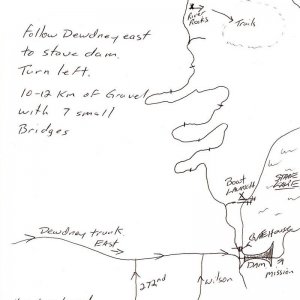 River
Rocks
Trails
Follow Dewdney east
to stave dam.
Turn left.
10-12 Km of Gravel
with 7 small
Bridges
Boat
Launch
STAVE
LAKE
Dewdney trunk
EAST
DAM
MISSION
272nd
Wilson